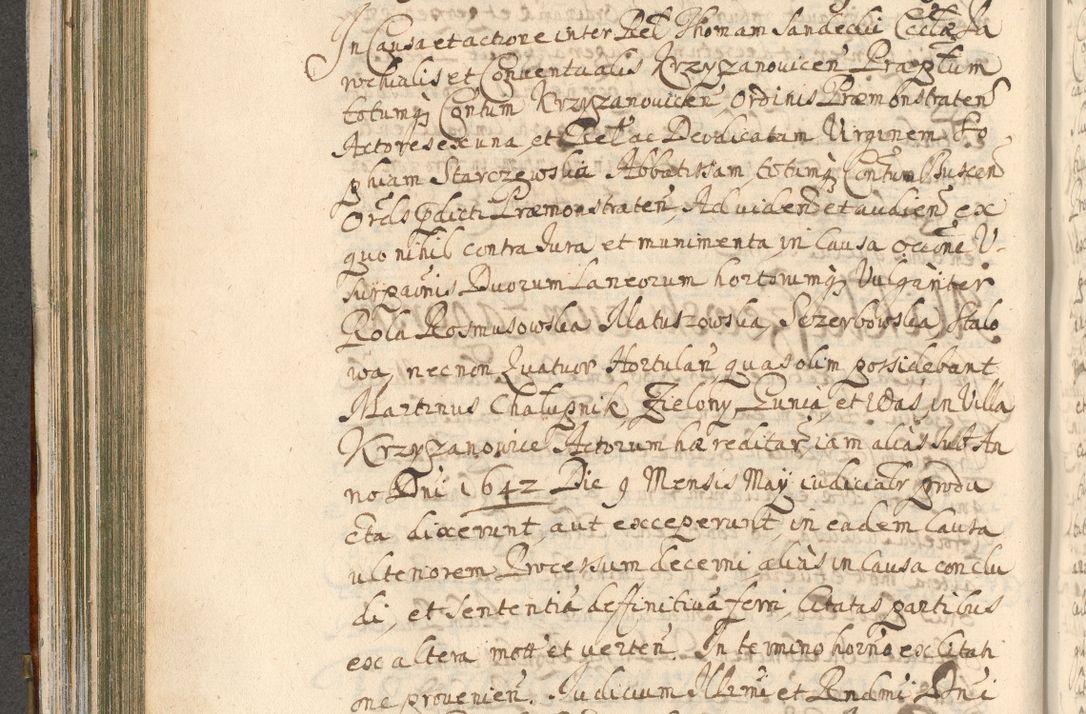 In Causa et actione inter Rel Thomam Sandecki Ecclae Pa
rochialis et Conventualis Krzyżanovicen Praeptum
totumq Contum Krzyzanovicen Ordinis Praemonstraten
Actores ex una, et Rel ac Devodicatam Virginem So
phiam Starczewska Abbatissam totumq Contum Buscen
Ordis pdicti Praemonstraten, Ad viden et audien ex
quo nihil contra Jura et munimenta in Causa occone V-
surpaonis Duorum Laneorum hortorumq Vulgariter
Rola Rosmusowska Matuszowska, Sczerbowska, Stalo
wa, necnon Quatuor Hortulan quas olim possidebant
Martinus Chalupnik, Zielony, Punia, et Was, in Villa
Krzyzanowice Actorum haereditar iam alias sub An
no Dni 1642 Die 9 Mensis May iudicialr produ
cta dixerunt, aut exceperunt, in eadem Causa
ulteriorem Processum decerni alias in Causa conclu
di, et sententia deffinitiva ferri, Citatas partibus
ex altera mott et verten. In termino horno ex Citati
one provenien. Judicium Illrmi et Rendmi Dni